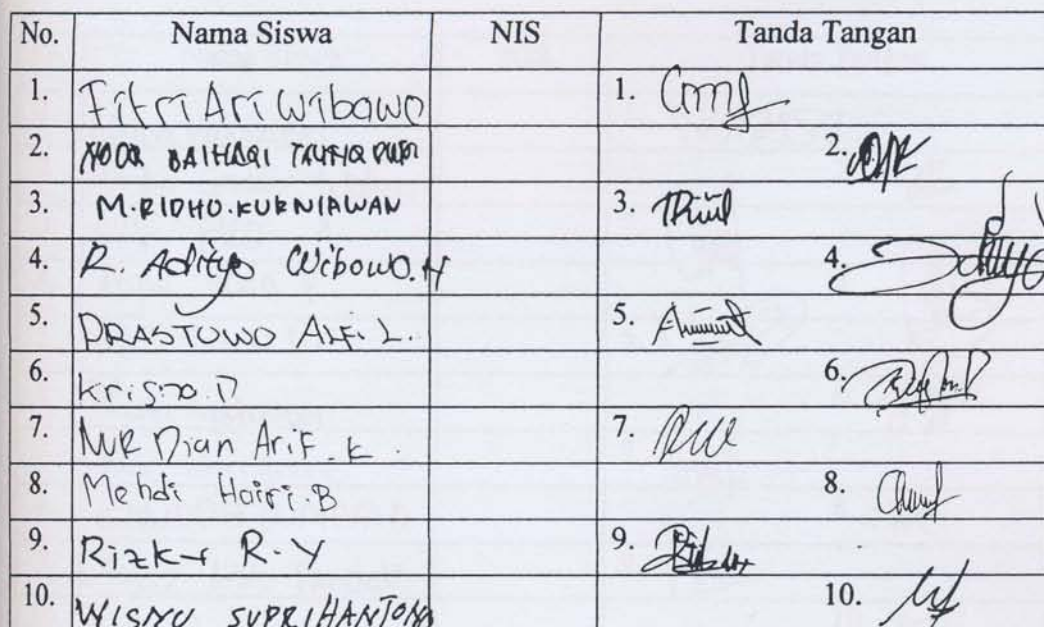 No. Nama Siswa NIS Tanda Tangan
1. Fitri Ari Wibowo 1.
2. NOOR BAIHAQI 2.
3. M.RIDHO.KURNIAWAN 3.
4. R. Aditya Wibowo.H 4.
5. PRASTOWO ALF. L. 5.
6. Krisna.D 6.
7. NUR Dian Arif. K. 7.
8. Mehdi 8.
9. Rizky R.Y 9.
10. WISNU SUPRIHANTONO 10.